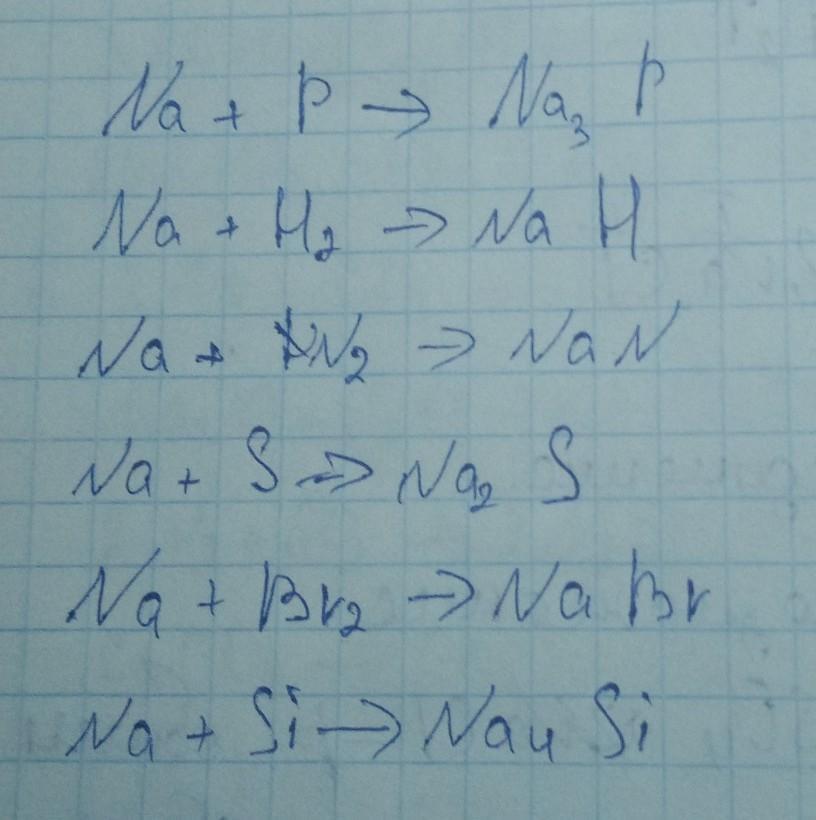 Na + P → Na₃ P
Na + H₂ → Na H
Na + N₂ → Na N
Na + S → Na₂ S
Na + Br₂ → Na Br
Na + Si → Na₄ Si